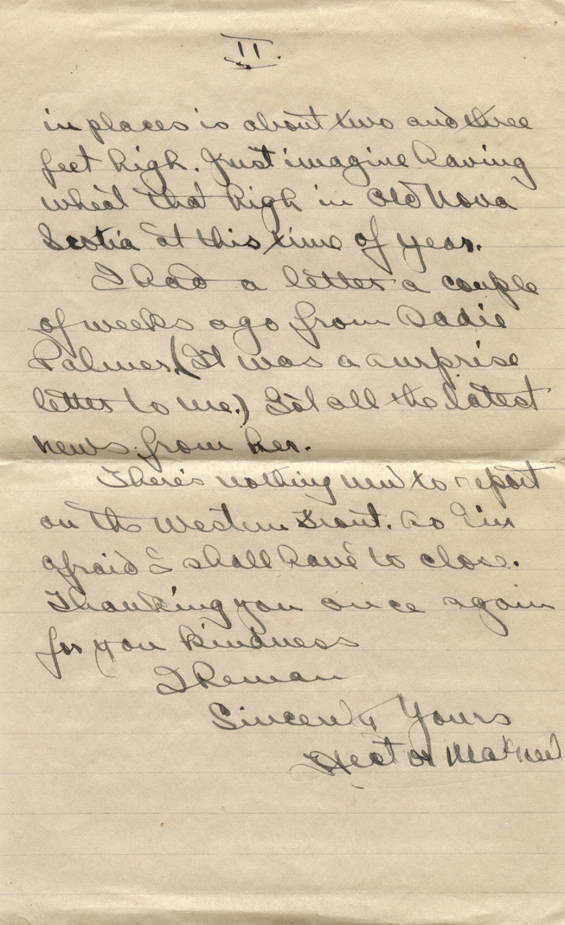 II.
in places is about two and three
feet high. Just imagine having
wheat that high in Old Nova
Scotia at this time of year.
I had a letter a couple
of weeks ago from Sadie
Palmer. (It was a surprise
letter to me.) Got all the latest
news from her.
There's nothing new to report
on the Western Front. So I'm
afraid I shall have to close.
Thanking you once again
for you kindness
I Reman
Sincerly Yours
Hector